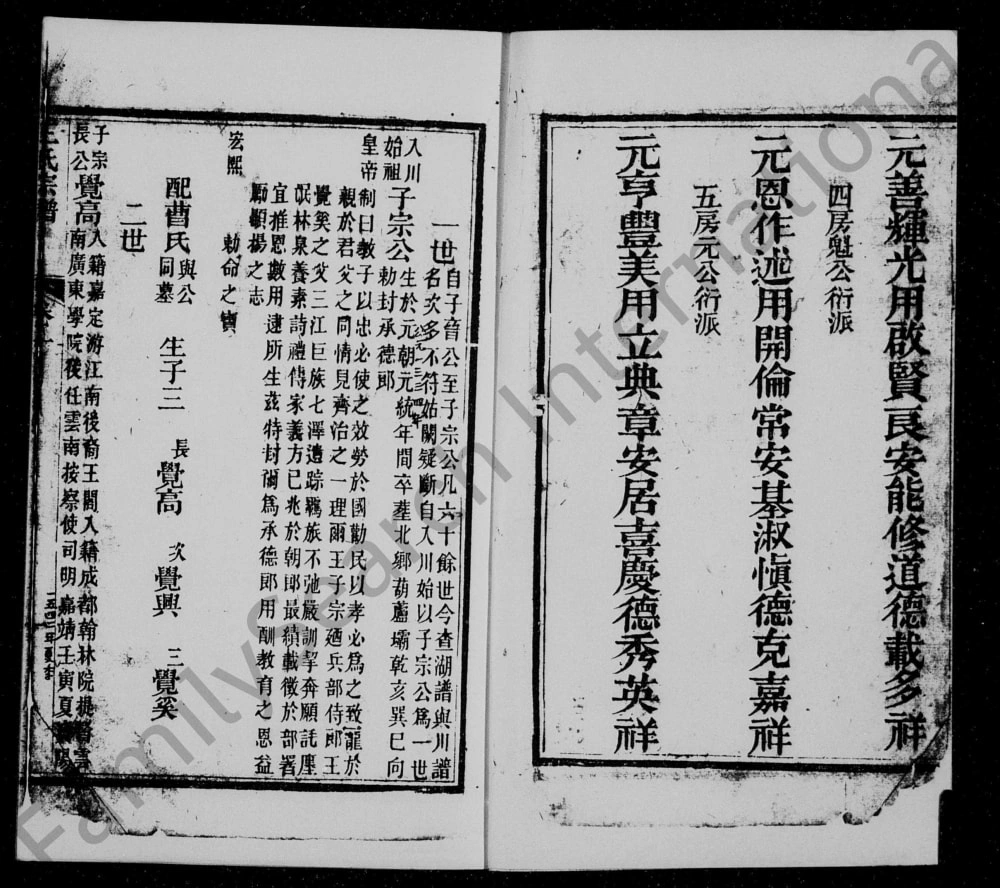 元善輝光用啟賢良安能修道德載多祥
四房魁公衍派
元恩作述用開倫常安基淑慎德克嘉祥
五房元公衍派
元亨豐美用立典章安居喜慶德秀英祥
一世
自子音公至子宗公凡六十餘世今查湖譜與川譜
名次多不符姑闕疑斷自入川始以子宗公為一世
入川
始祖
子宗公
生於元朝元統年間卒墓北鄉葫蘆壩乾亥巽巳向
勅封承德郎
皇帝
制曰教子以忠必使之效勞於國勸民以孝必為之致寵於
親於君父之同情見齊治之一理爾王子宗廼兵部侍郎王
覺奚之父三江巨族七澤遺踪羈族不弛嚴訓挈奔願託廛
氓林泉養素詩禮傳家義方已兆於朝郎最績載徵於部署
宜推恩數用逮所生茲特封爾為承德郎用酬教育之恩益
勵顯揚之志
宏熙
勅命之寶
配曹氏
與公
同墓
生子三
長
覺高
次
覺興
三
覺奚
二世
子宗
長公
覺高
入籍嘉定游江南後裔王閣入籍成都翰林院提督
南廣東學院後任雲南按察使司明嘉靖壬寅夏
王氏宗譜
FamilySearch International